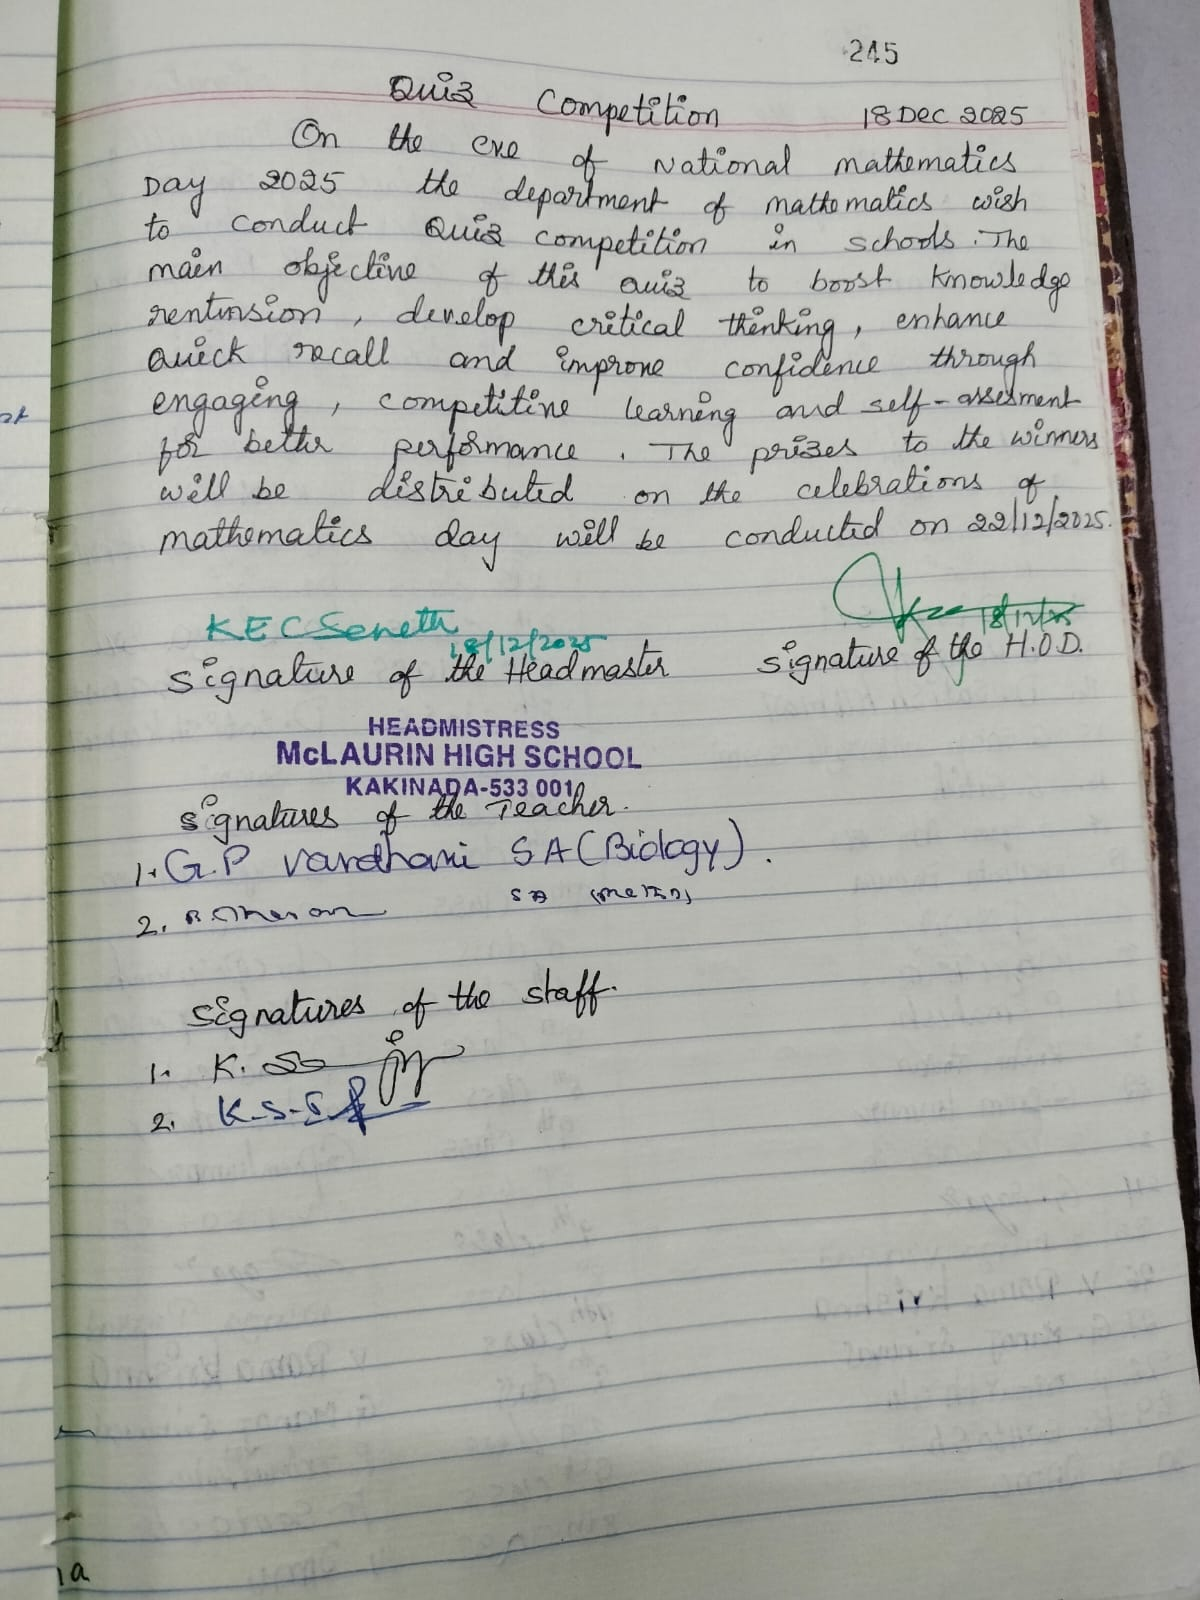 245
Quiz Competition 18 Dec 2025
On the eve of National mathematics
Day 2025 the department of mathematics wish
to conduct Quiz competition in schools. The
main objective of this quiz to boost knowledge
rentinsion, develop critical thinking, enhance
quick recall and improve confidence through
engaging, competitive learning and self-assesment
for better performance. The prizes to the winners
will be distributed on the celebrations of
mathematics day will be conducted on 22/12/2025.
18/12/2025 18/12/25
Signature of the Headmaster Signature of the H.O.D.
HEADMISTRESS
McLAURIN HIGH SCHOOL
KAKINADA-533 001
Signatures of the Teacher.
1. G.P Vardhani SA (Biology).
2. SA
Signatures of the staff.
1. K.
2. K.S.S